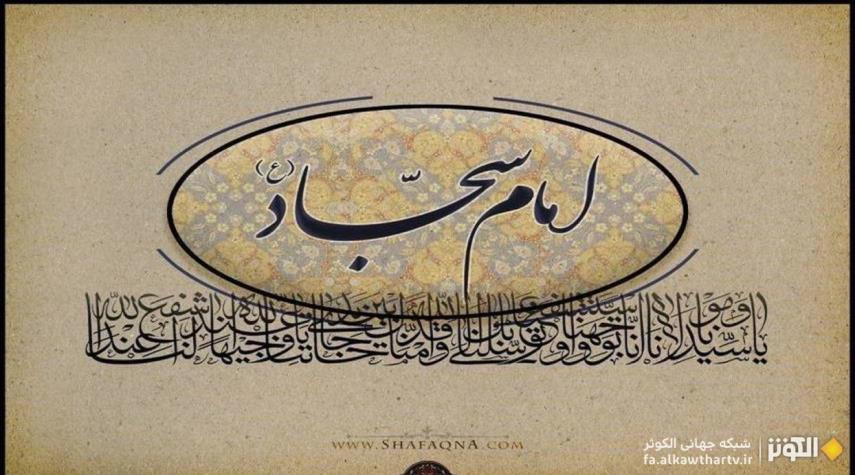 امام سجّاد (ع)
یا سیدنا و مولانا انا توجهنا و استشفعنا و توسلنا بک الی الله و قدمناک بین یدی حاجاتنا یا وجیها عند الله اشفع لنا عند الله
WWW.SHAFAQNA.COM
شبکه جهانی الکوثر
الکوثر
fa.alkawthartv.ir